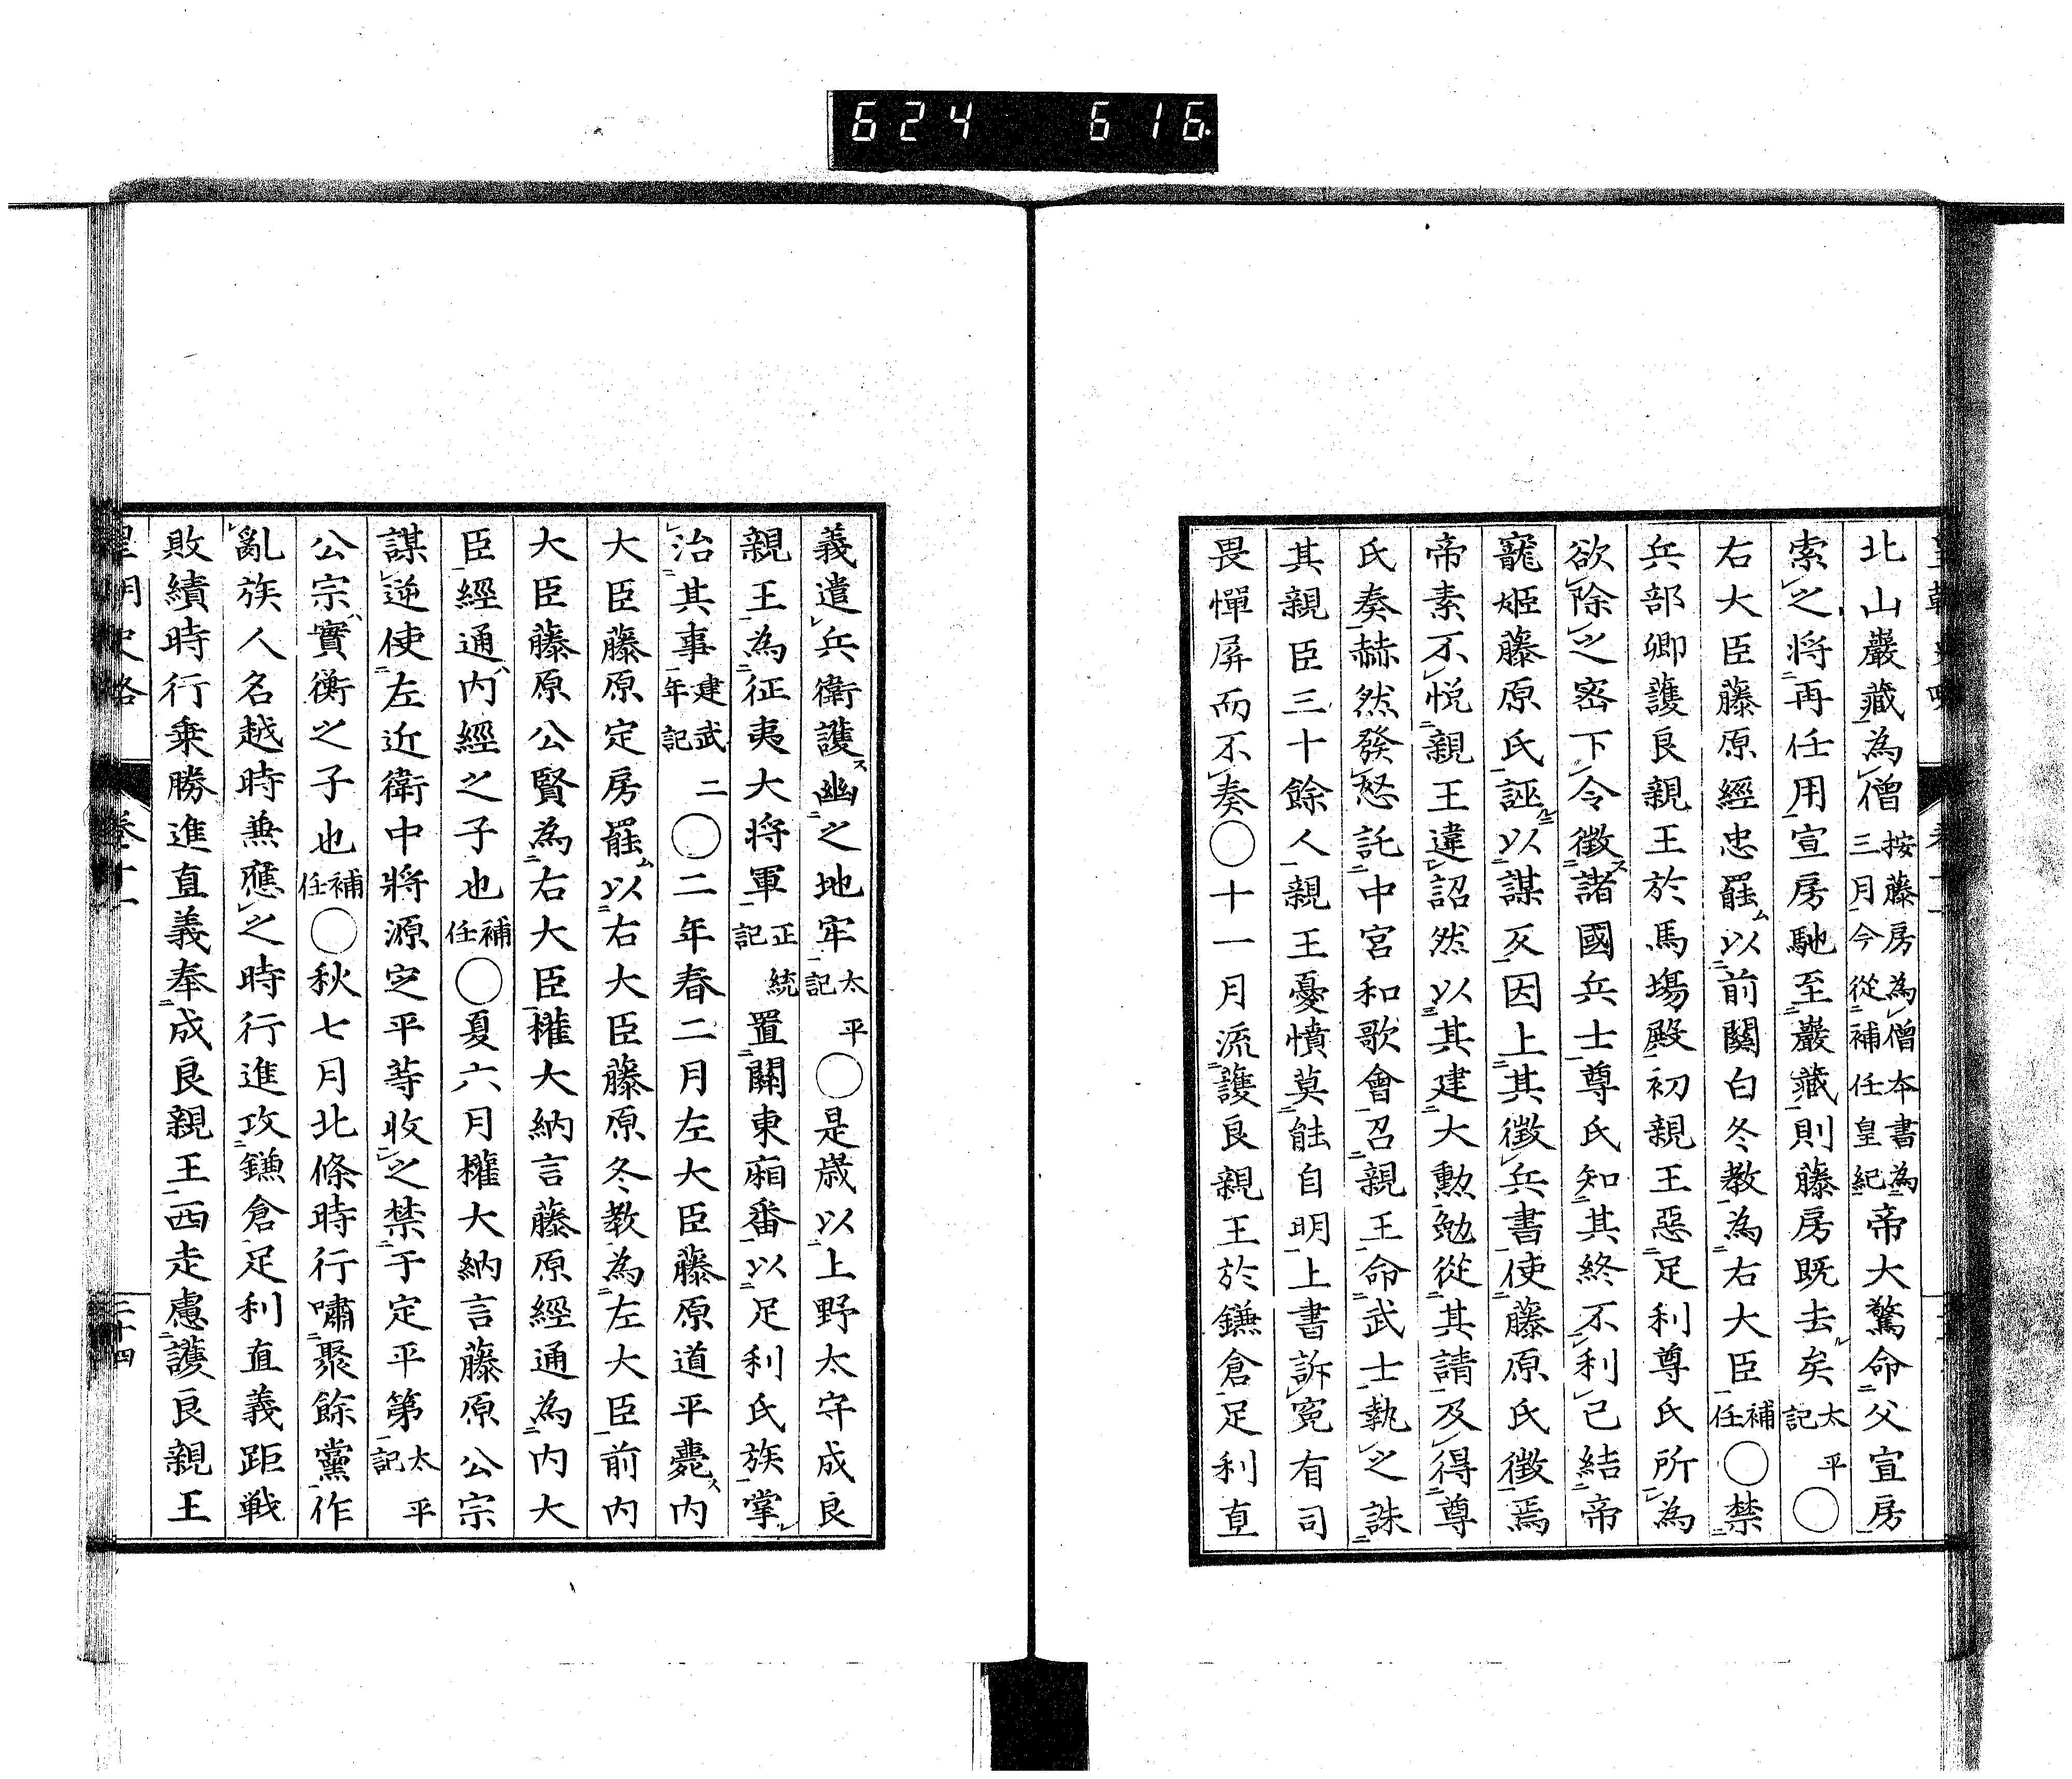 624 616
北山巖藏為僧按藤房為僧本書為三月今從補任皇紀帝大驚命父宣房
索之將再任用宣房馳至巖藏則藤房既去矣太平記〇
右大臣藤原經忠罷以前關白冬教為右大臣補任〇禁
兵部卿護良親王於馬場殿初親王惡足利尊氏所為
欲除之密下令徵諸國兵士尊氏知其終不利已結帝
寵姬藤原氏誣以謀反因上其徵兵書使藤原氏徵焉
帝素不悅親王違詔然以其建大勲勉從其請及得尊
氏奏赫然發怒託中宮和歌會召親王命武士執之誅
其親臣三十餘人親王憂憤莫能自明上書訴冤有司
畏憚屏而不奏〇十一月流護良親王於鎌倉足利直
義遣兵衛護幽之地牢太平記〇是歲以上野太守成良
親王為征夷大将軍正統記置關東廂番以足利氏族掌
治其事建武二年記〇二年春二月左大臣藤原道平薨內
大臣藤原定房罷以右大臣藤原冬教為左大臣前内
大臣藤原公賢為右大臣權大納言藤原經通為内大
臣經通内經之子也補任〇夏六月權大納言藤原公宗
謀逆使左近衛中將源定平等收之禁于定平第太平記
公宗實衡之子也補任〇秋七月北條時行嘯聚餘黨作
亂族人名越時兼應之時行進攻鎌倉足利直義距戦
敗績時行乗勝進直義奉成良親王西走慮護良親王
皇朝史略 卷十一 二十四